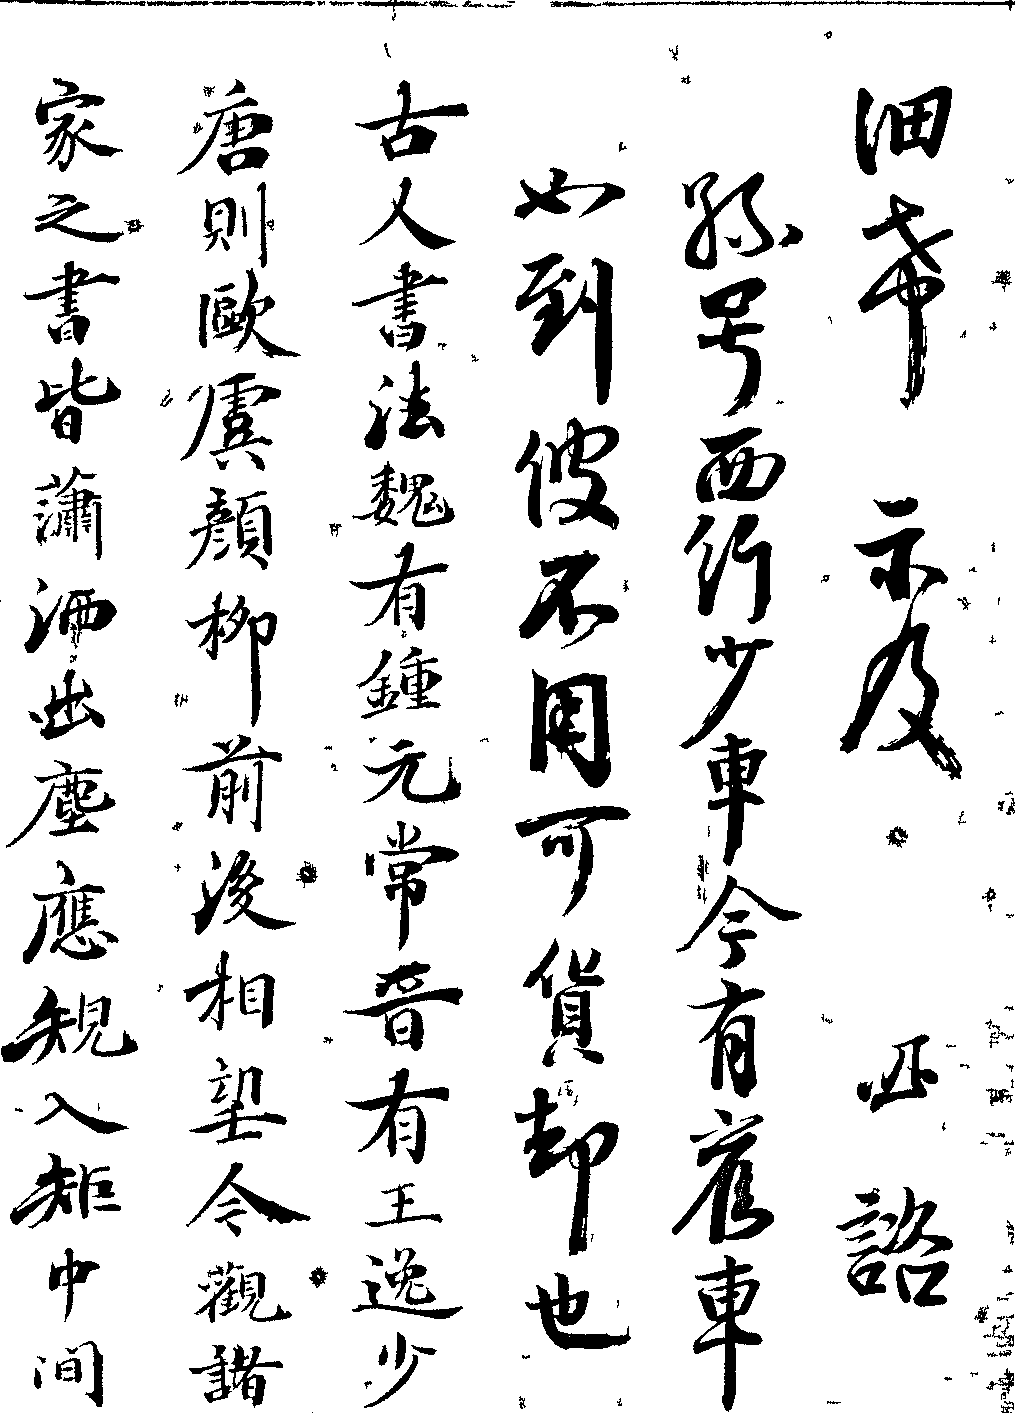 細希 示及 必 諮
孫号西行少車今有舊車
如到彼不用可貨却也
古人書法魏有鍾元常晉有王逸少
唐則歐虞顏柳前後相望今觀諸
家之書皆瀟洒出塵應規入矩中間